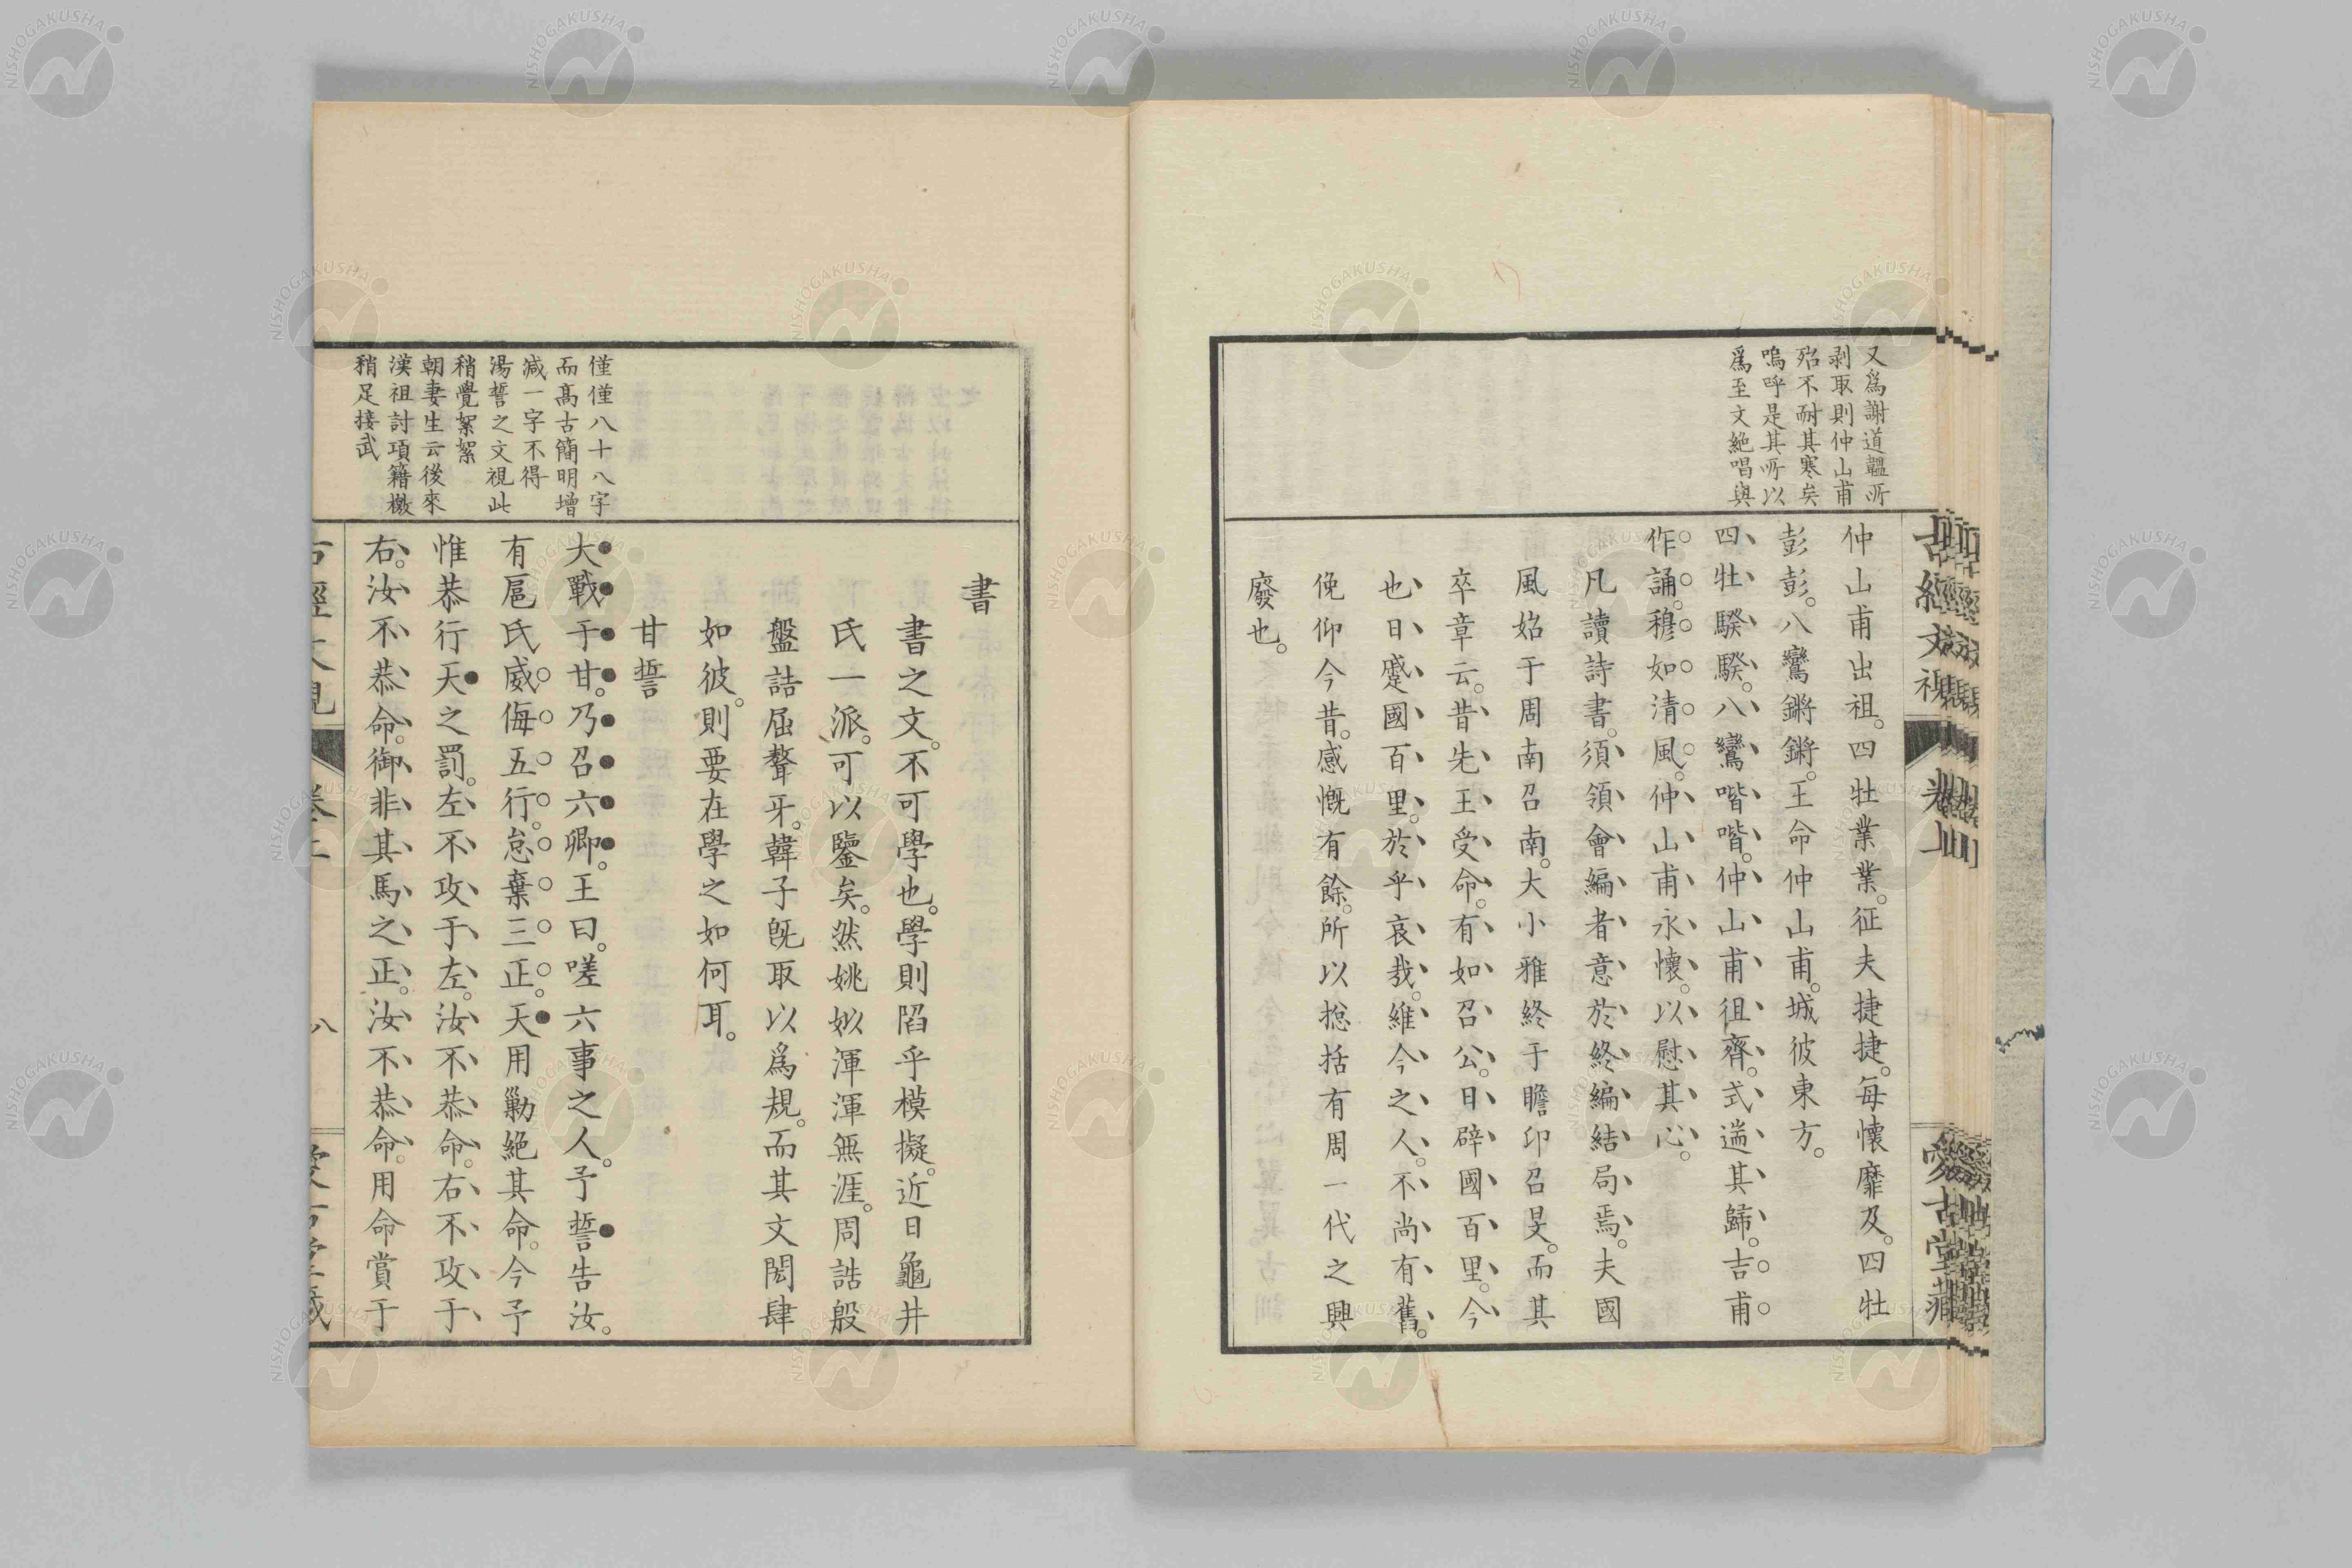 又爲謝道韞所
剥取則仲山甫
殆不耐其寒矣
嗚呼是其所以
爲至文絶唱與
仲山甫出祖。四牡業業。征夫捷捷。每懷靡及。四牡
彭彭。八鸞鏘鏘。王命仲山甫。城彼東方。
四牡騤騤。八鸞喈喈。仲山甫徂齊。式遄其歸。吉甫
作誦。穆如清風。仲山甫永懷。以慰其心。
凡讀詩書。須領會編者意於終編結局焉。夫國
風始于周南召南。大小雅終于瞻卬召旻。而其
卒章云。昔先王受命。有如召公。日辟國百里。今
也日蹙國百里。於乎哀哉。維今之人。不尚有舊。
俛仰今昔。感慨有餘。所以揔括有周一代之興
廢也。
古經文視
卷上
愛古堂藏
書
書之文。不可學也。學則陷乎模擬。近日龜井
氏一派。可以鑒矣。然姚姒渾渾無涯。周誥殷
盤詰屈聱牙。韓子既取以爲規。而其文閎肆
如彼。則要在學之如何耳。
甘誓
僅僅八十八字
而高古簡明增
減一字不得
湯誓之文視此
稍覺絮絮
朝妻生云後來
漢祖討項籍檄
稍足接武
大戰于甘。乃召六卿。王曰。嗟六事之人。予誓告汝。
有扈氏威侮五行。怠棄三正。天用勦絶其命。今予
惟恭行天之罰。左不攻于左。汝不恭命。右不攻于
右。汝不恭命。御非其馬之正。汝不恭命。用命賞于
八
NISHOGAKUSHA